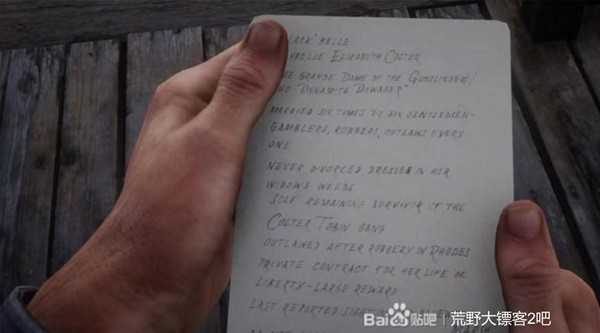 BLACK' BELLE
ELIZABETH COLTER
GRANDE DAME OF THE GUNSLINGERS/
"DYNAMITE DEWAGER"
MARRIED SIX TIMES BY SIX GENTLEMEN-
GAMBLERS, ROBBERS, OUTLAWS EVERY
ONE
NEVER DIVORCED DRESSES IN HER
WIDOWS WEEDS
SOLE REMAINING SURVIVOR OF THE
COLTER TOBIN GANG
OUTLAWED AFTER ROBBERY IN RHODES
PRIVATE CONTRACT FOR HER LIFE OR
LIBERTY-LARGE REWARD
LAST REPORTED
Bai贴吧 | 荒野大镖客2吧